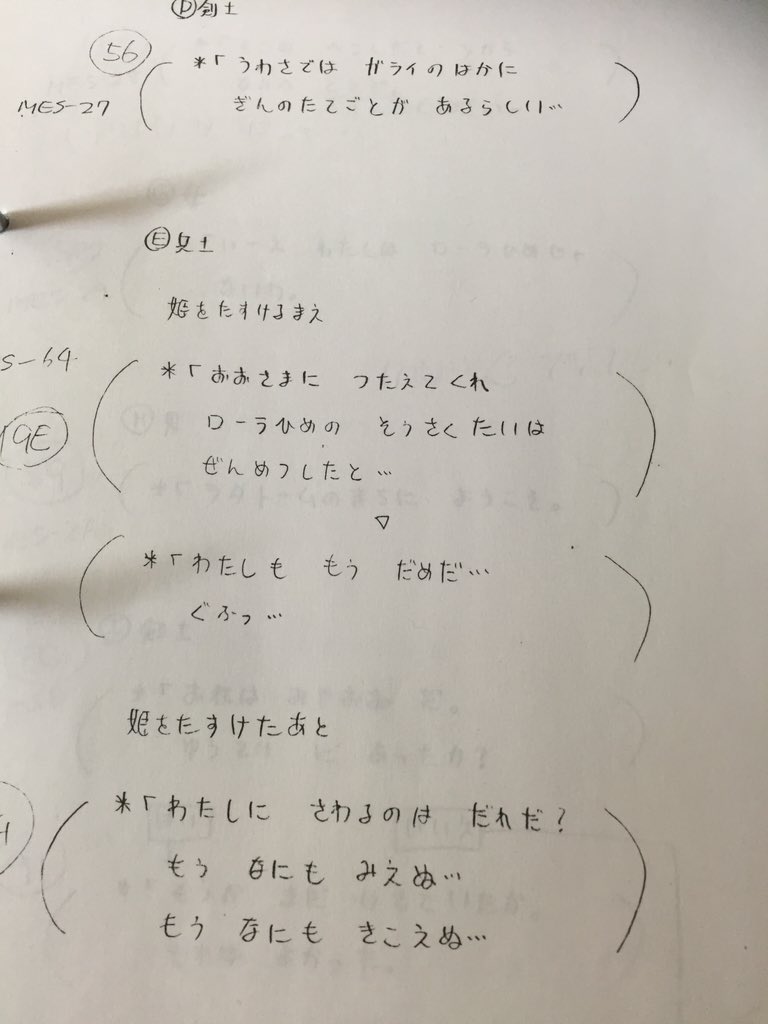 Ⓓ剣士
56
*「うわさでは ガライのはかに
MES-27
ぎんのたてごとが あるらしい…
Ⓔ兵士
姫をたすけるまえ
S-64
*「おおさまに つたえてくれ
9E
ローラひめの そうさくたいは
ぜんめつしたと…
▽
*「わたしも もう だめだ…
ぐふっ…
姫をたすけたあと
*「わたしに さわるのは だれだ?
もう なにも みえぬ…
もう なにも きこえぬ…